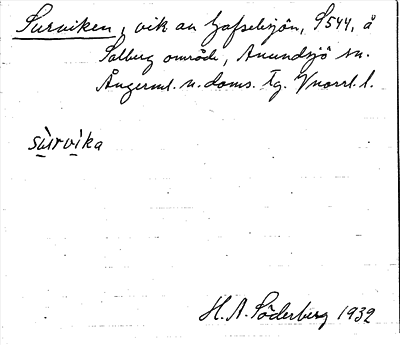 Surviken, vik av Gafselesjön, S544, å
Solberg område, Anundsjö sn.
Ångerml. n. doms. tg. Vnorrl. l.
su̠rvi̠ka
H. A. Söderberg 1932